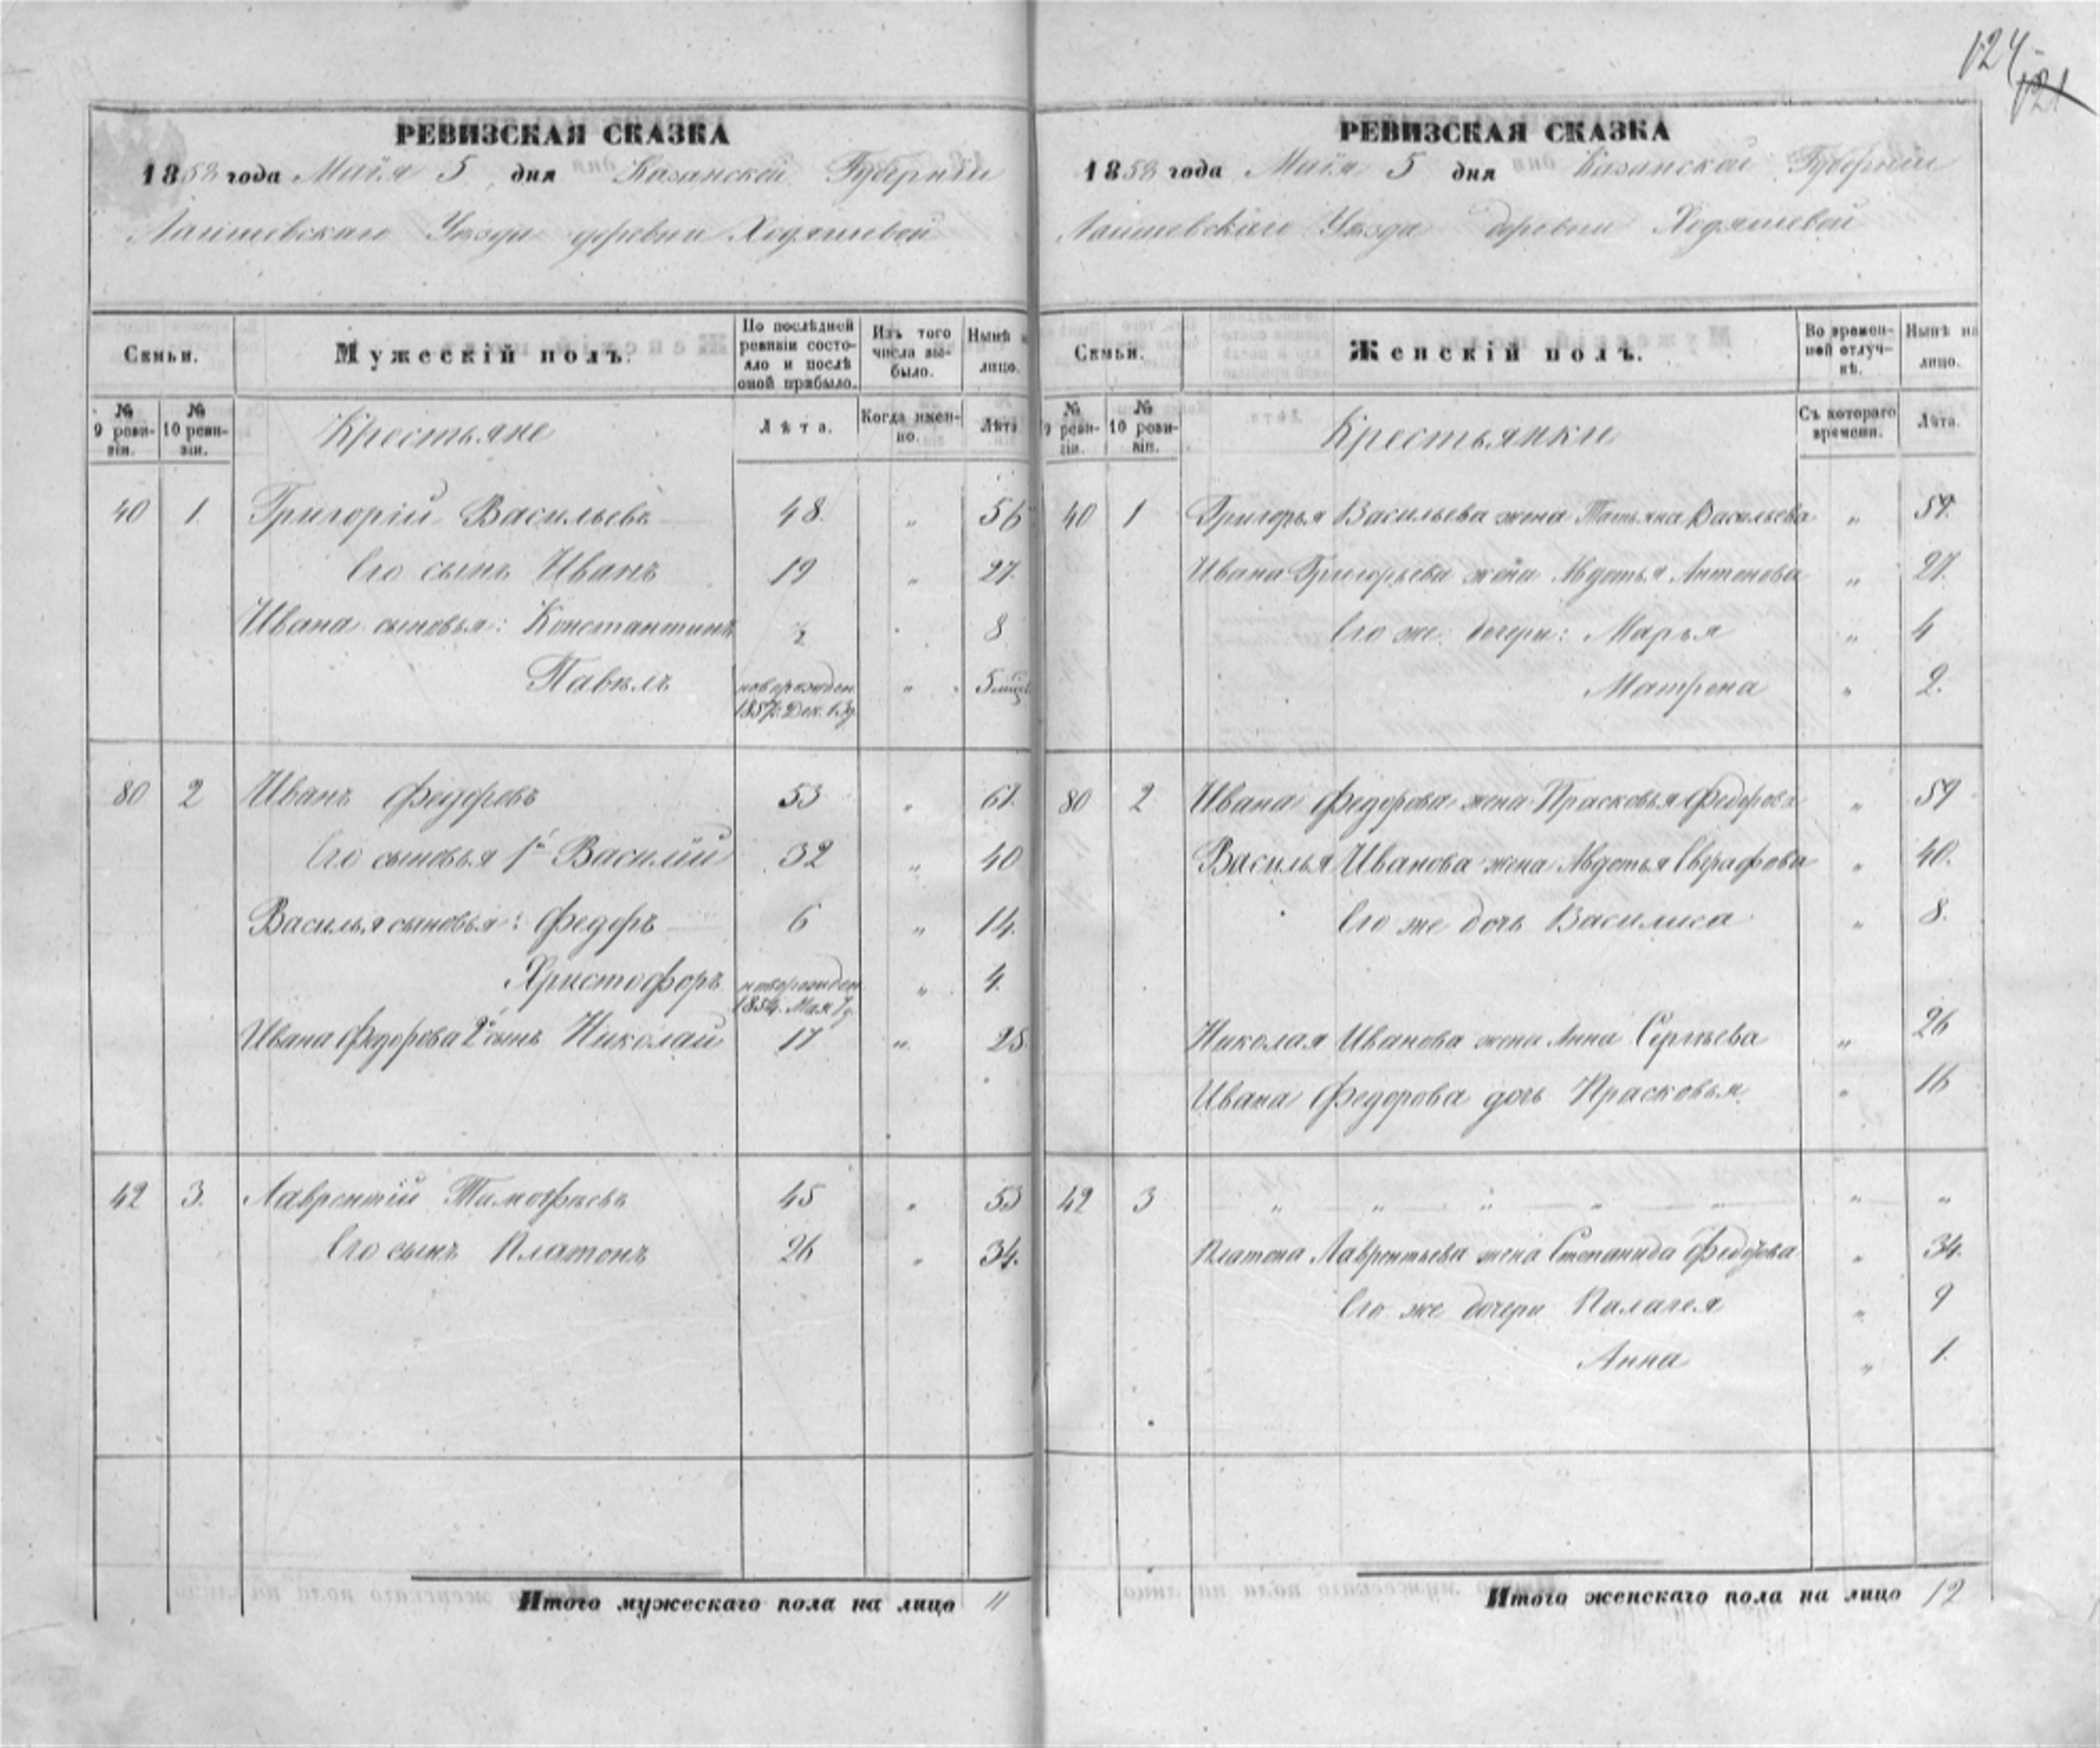 124
121
РЕВИЗСКАЯ СКАЗКА
1858 года Маія 5 дня Казанской Губерніи
Лаишевскаго Уѣзда деревни Ходяшевой
Семьи.
Мужескій полъ.
По послѣдней ревизіи состояло и послѣ оной прибыло.
Изъ того числа выбыло.
Нынѣ на лицо.
№ 9 ревизіи.
№ 10 ревизіи.
Крестьяне
Лѣта.
Когда именно.
Лѣта
40 1. Григорій Васильевъ 48. " 56
Его сынъ Иванъ 19 " 27.
Ивана сыновья: Константинъ ½ " 8
Павелъ новорожден. 1857. Дек. 13д. " 5 мѣсяц
80 2 Иванъ Федоровъ 53 " 61.
Его сыновья 1й Василій 32 " 40
Василья сыновья: Федоръ 6 " 14.
Христофоръ новорожден 1854. Мая 7д. " 4.
Ивана Федорова 2й сынъ Николай 17 " 25.
42 3. Лаврентій Тимофѣевъ 45 " 53
Его сынъ Платонъ 26 " 34.
Итого мужескаго пола на лицо 11
РЕВИЗСКАЯ СКАЗКА
1858 года Маія 5 дня Казанской Губерніи
Лаишевскаго Уѣзда деревни Ходяшевой
Семьи.
Женскій полъ.
Во временной отлучкѣ.
Нынѣ на лицо.
№ 9 ревизіи.
№ 10 ревизіи.
Крестьянки
Съ котораго времени.
Лѣта.
40 1 Григорья Васильева жена Татьяна Васильева "
Ивана Григорьева жена Авдотья Антонова " 27.
Его же дочери: Марья " 4
Матрена " 2.
80 2 Ивана Федорова жена Прасковья Федорова " 59
Василья Иванова жена Авдотья Евграфова " 40.
Его же дочь Василиса " 8.
Николая Иванова жена Анна Сергѣева " 26
Ивана Федорова дочь Прасковья " 16
42 3 " " " " " " "
Платона Лаврентьева жена Степанида Федорова " 34.
Его же дочери Палагея " 9
Анна " 1.
Итого женскаго пола на лицо 12